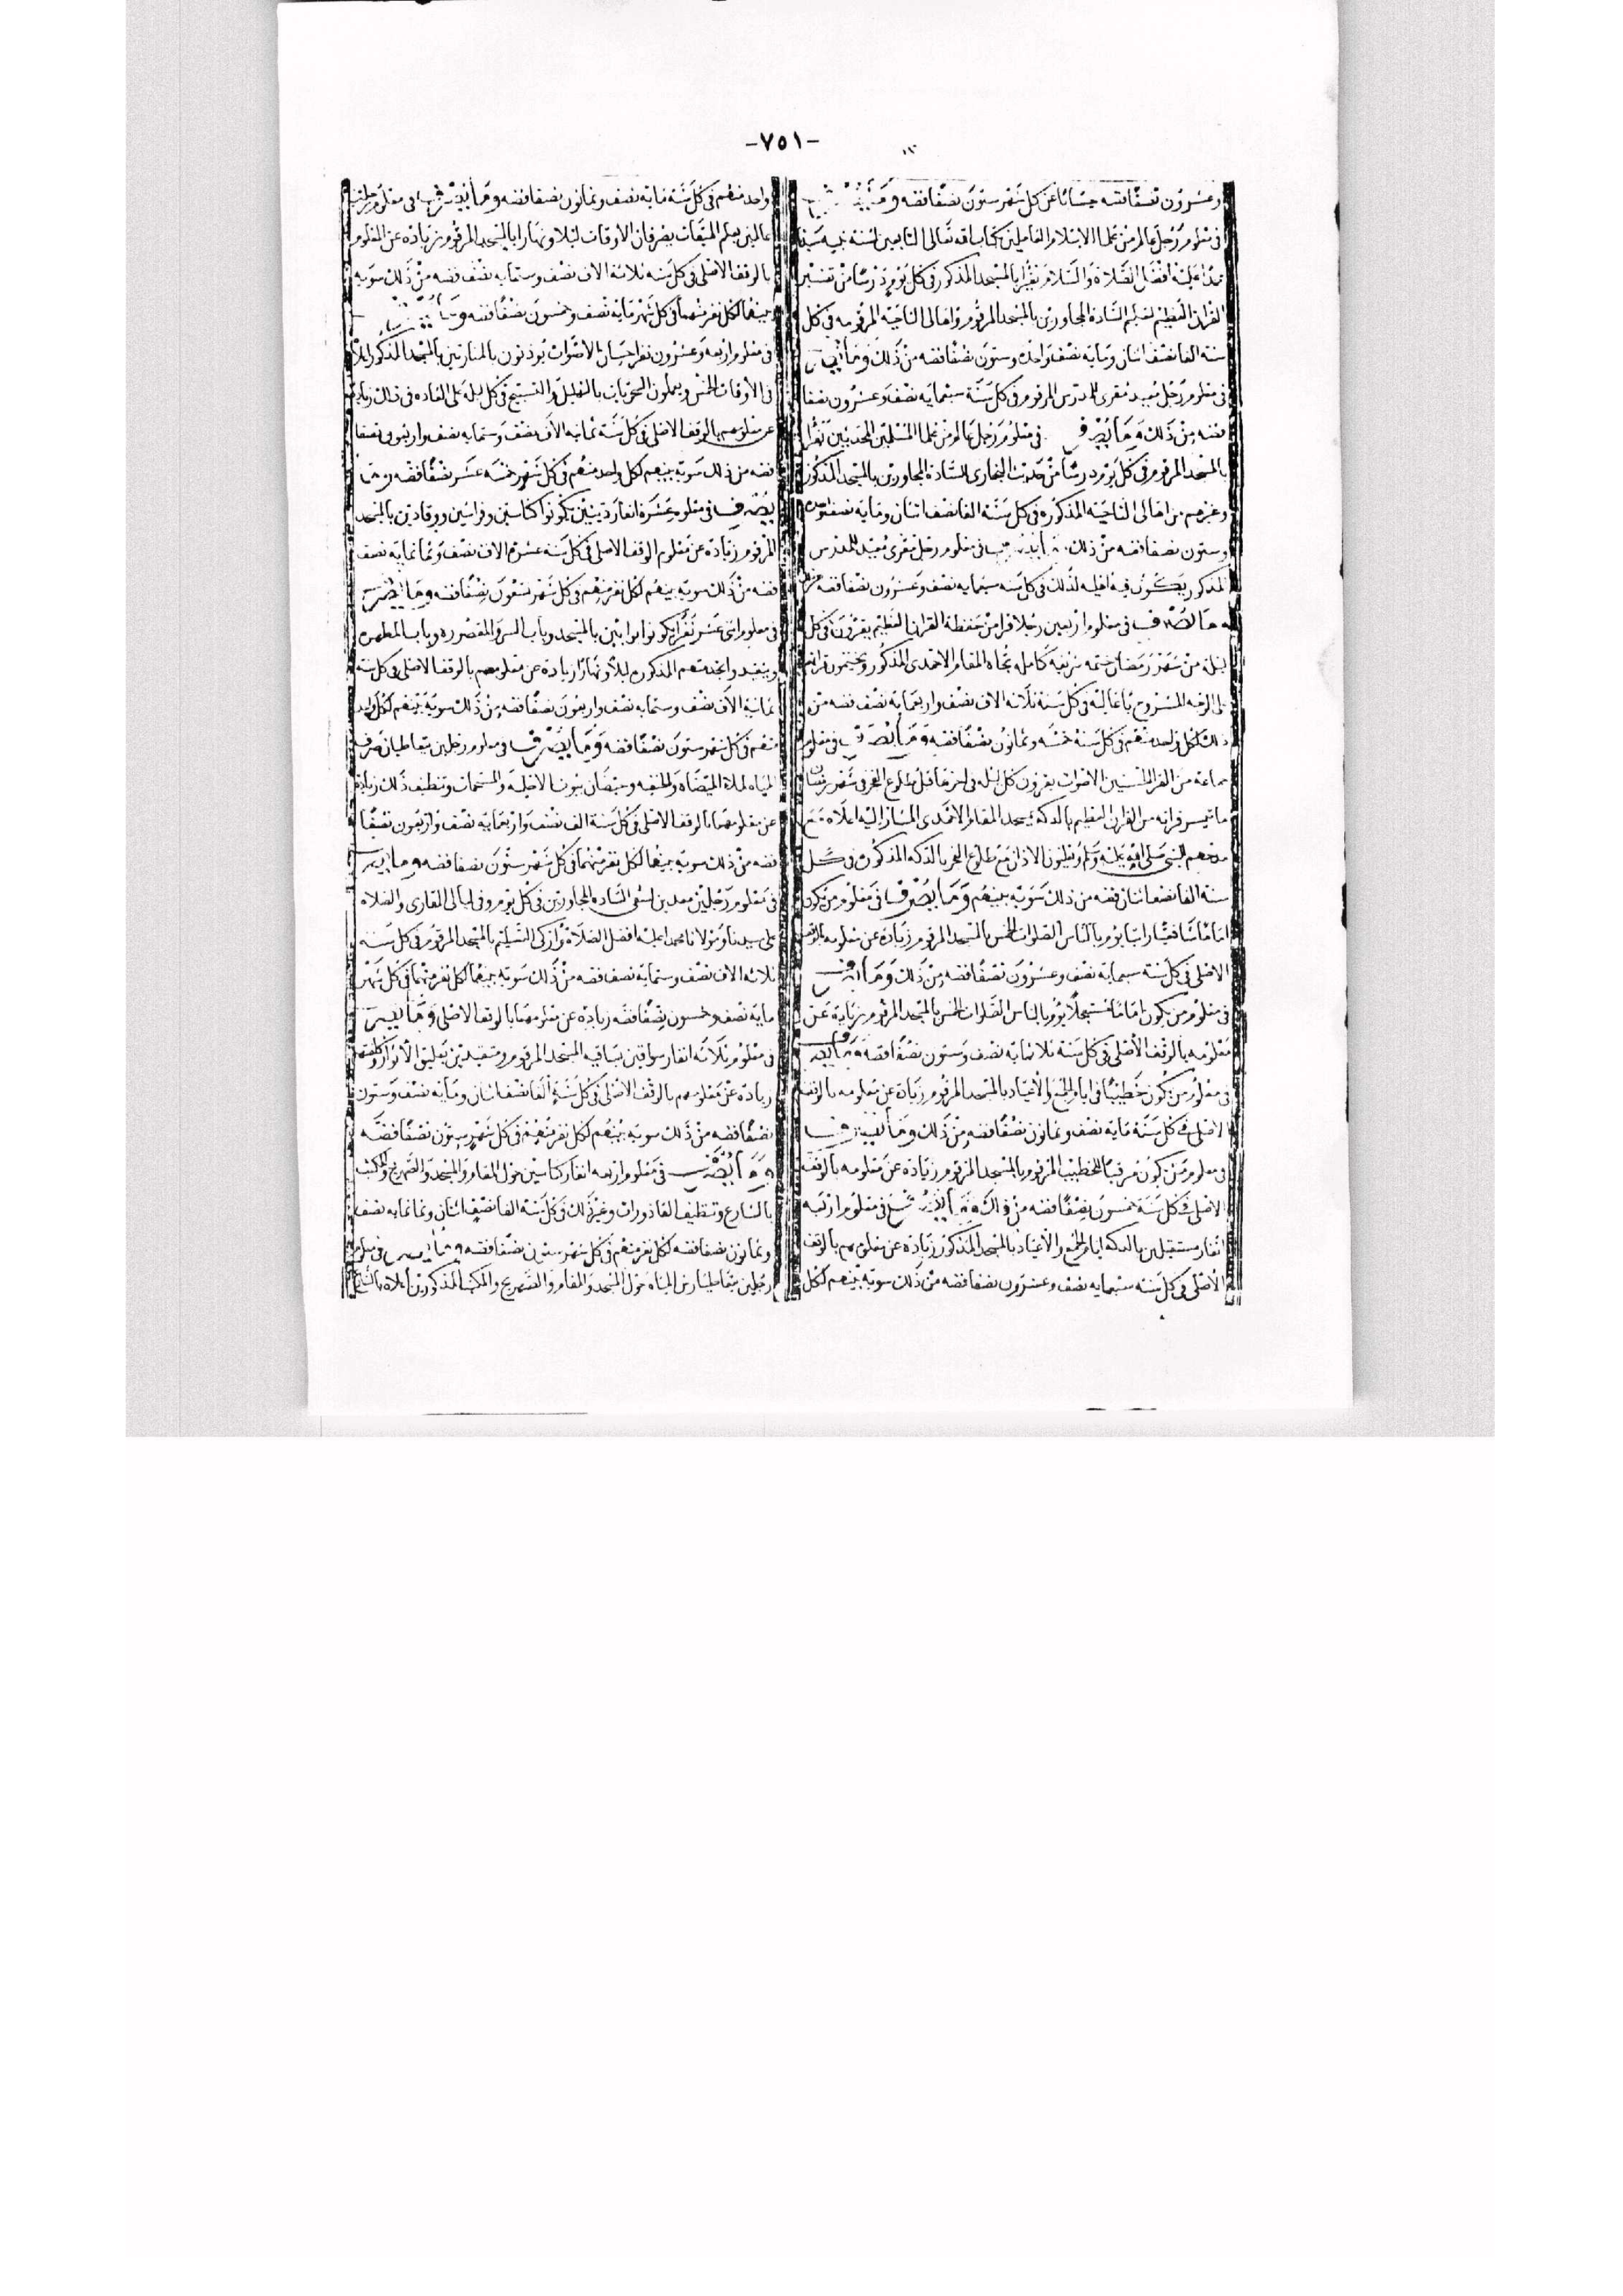 -٧٥١-
وعشرون نصفا فضه حسابا عن كل شهر ستون نصفا فضه
فى معلوم رجل عالم من علما الاسلام العاملين بكتاب الله تعالى التابعين لسنة نبيه سيدنا
محمد عليه افضل الصلاة والسلام يقرا بالمسجد المذكور فى كل يوم درسا من تفسير
القران العظيم لتعليم السادة المجاورين بالمسجد المرقوم واهالى الناحية المرقومه فى كل
سنة الفا نصف اثنان ومايه نصف واحده وستون نصفا فضه من ذلك وما
فى معلوم رجل معيد مقرى للدرس المرقوم فى كل سنة سبعمايه نصف وعشرون نصفا
فضه من ذلك وما يصرف فى معلوم رجل عالم من علما المسلمين المحدثين يقرا
بالمسجد المرقوم فى كل يوم درسا من حديث البخارى للسادة المجاورين بالمسجد المذكور
وغيرهم من اهالى الناحية المذكوره فى كل سنة الفا نصف اثنان ومايه نصف
وستون نصفا فضه من ذلك فى معلوم رجل مقرى معيد للمدرس
المذكور يكون فيه اهليه لذلك فى كل سنه سبعمايه نصف وعشرون نصفا فضه
وما يصرف فى معلوم اربعين رجلا قرا من حفظة القران العظيم يقرون فى كل
ليلة من شهر رمضان ختمه شريفه كامله تجاه المقام الاحمدى المذكور ويختمون قرانهم
على الوجه المشروح باعاليه فى كل سنة ثلاثة الاف نصف واربعمايه نصف فضه من
ذلك لكل واحد منهم فى كل سنة خمسه وثمانون نصفا فضه وما يصرف فى معلوم
جماعة من القرا الحسنين الاصوات يقرون كل ليله فى اخرها قبل طلوع الفجر فى شهر رمضان
ما تيسر قراته من القران العظيم بالدكة بمسجد المقام الاحمدى المشار اليه اعلاه مع
مدحهم للنبى صلى الله عليه وسلم ويعلنون الاذان مع طلوع الفجر بالدكه المذكوره فى كل
سنة الفا نصفا اثنان فضه من ذلك سوية بينهم وما يصرف فى معلوم من يكون
اماما شافعيا راتبا يوم بالناس الصلوات الخمس بالمسجد المرقوم زيادة عن معلومه بالوقف
الاصلى فى كل سنة سبعمايه نصف وعشرون نصفا فضه من ذلك وما
فى معلوم من يكون اماما مستعجلا يوم بالناس الصلوات الخمس بالمسجد المرقوم زيادة عن
معلومه بالوقف الاصلى فى كل سنة ثلاثمايه نصف وستون نصفا فضه
فى معلوم من يكون خطيبا فى ايام الجمع والاعياد بالمسجد المرقوم زيادة عن معلومه بالوقف
الاصلى فى كل سنة مايه نصف وثمانون نصفا فضه من ذلك وما
فى معلوم من يكون مرقيا للخطيب المرقوم بالمسجد المرقوم زيادة عن معلومه بالوقف
الاصلى فى كل سنة خمسون نصفا فضه من ذلك فى معلوم اربعة
انفار مستقبلين بالدكه ايام الجمع والاعياد بالمسجد المذكور زيادة عن معلومهم بالوقف
الاصلى فى كل سنة سبعمايه نصف وعشرون نصفا فضه من ذلك سوية بينهم لكل
واحد منهم فى كل سنة مايه نصف وثمانون نصفا فضه وما يصرف فى معلوم رجلين
عالمين بعلم الميقات يعرفان الاوقات ليلا ونهارا بالمسجد المرقوم زيادة عن المعلوم
بالوقف الاصلى فى كل سنه ثلاثة الاف نصف وستمايه نصف فضه من ذلك سويه
بينهما لكل نفر منهما فى كل شهر مايه نصف وخمسون نصفا فضه
فى معلوم اربعه وعشرون نفرا حسان الاصوات يوذنون بالمنارتين بالمسجد المذكور
فى الاوقات الخمس ويعملون السحريات بالتهليل والتسبيح فى كل ليله على العاده فى ذلك زيادة
عن معلومهم بالوقف الاصلى فى كل سنة ثمانيه الاف نصف وستمايه نصف واربعون نصفا
فضه من ذلك سوية بينهم لكل واحد منهم فى كل شهر خمسة عشر نصفا فضه وما
يصرف فى معلوم عشرة انفار دينين يكونوا كناسين وفراشين ووقادين بالمسجد
المرقوم زيادة عن معلوم الوقف الاصلى فى كل سنة عشرة الاف نصف وثمانمايه نصف
فضه من ذلك سوية بينهم لكل نفر منهم فى كل شهر تسعون نصفا فضه وما يصرف
فى معلوم اثنى عشر نفرا يكونوا بوابين بالمسجد وباب السر والمقصوره وباب المطهره
وبتقيد واتحدتهم المذكوره ليلا ونهارا زيادة عن معلومهم بالوقف الاصلى فى كل سنة
ثمانية الاف نصف وستمايه نصف واربعون نصفا فضه من ذلك سوية بينهم لكل واحد
منهم فى كل شهر ستون نصفا فضه وما يصرف فى معلوم رجلين يتعاطيان صرف
المياه لملاة الميضاه والحنفيه وحيضان بيوت الاخليه والمستحمات وتنظيف ذلك زيادة
عن معلومهما بالوقف الاصلى فى كل سنة الف نصف واربعمايه نصف واربعون نصفا
فضه من ذلك سوية بينهما لكل نفر منهما فى كل شهر ستون نصفا فضه وما يصرف
فى معلوم رجلين معدين لسقى الساده المجاورين فى كل يوم وفى ليالى القارى والصلاه
على سيدنا ومولانا محمد عليه افضل الصلاة وازكى التسليم بالمسجد المرقوم فى كل سنه
ثلاثه الاف نصف وستمايه نصف فضه من ذلك سوية بينهما لكل نفر منهما فى كل شهر
مايه نصف وخمسون نصفا فضه زيادة عن معلومهما بالوقف الاصلى وما يصرف
فى معلوم ثلاثه انفار سواقين بساقية المسجد المرقوم ومتقيدين بعليق الاثوار وكلفتهم
زيادة عن معلومهم بالوقف الاصلى فى كل سنة الفا نصف اثنان ومايه نصف وستون
نصفا فضه من ذلك سوية بينهم لكل نفر منهم فى كل شهر ستون نصفا فضه
وما يصرف فى معلوم اربعه انفار كناسين حول المقام والمسجد والصهريج والمكتب
بالشارع وتنظيف القاذورات وغير ذلك فى كل سنة الفا نصف اثنان وثمانمايه نصف
وثمانون نصفا فضه لكل نفر منهم فى كل شهر ستون نصفا فضه وما يصرف فى معلوم
رجلين يتعاطيا رش المياه حول المسجد والمقام والصهريج والمكتب المذكورين اعلاه بالشارع